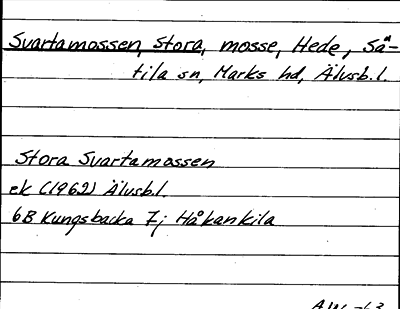 Svartamossen, Stora, mosse, Hede, Sä-
tila sn, Marks hd, Älvsb.l.
Stora Svartamossen
ek (1962) Älvsb.l.
6B Kungsbacka 7j Håkankila